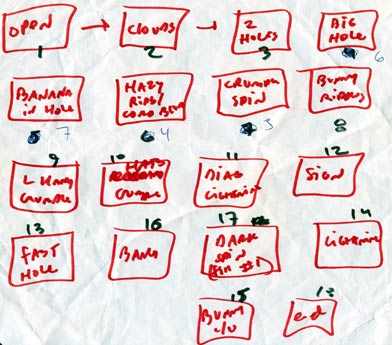 OPEN
CLOUDS
2
HOLES
BIG
HOLE
1
2
3
6
BANANA
IN HOLE
HAZY
RIBS/
CRUMBLE
SPIN
BUNNY
7
4
5
8
9
10
11
12
L HAND
CRUMBLE
CRUMBLE
DIAG
LIGHTNING
SIGN
13
16
17
14
FAST
HOLE
BANG
DARK
SPIN
#1
LIGHTNING
15
18
BUNNY
C/U
END